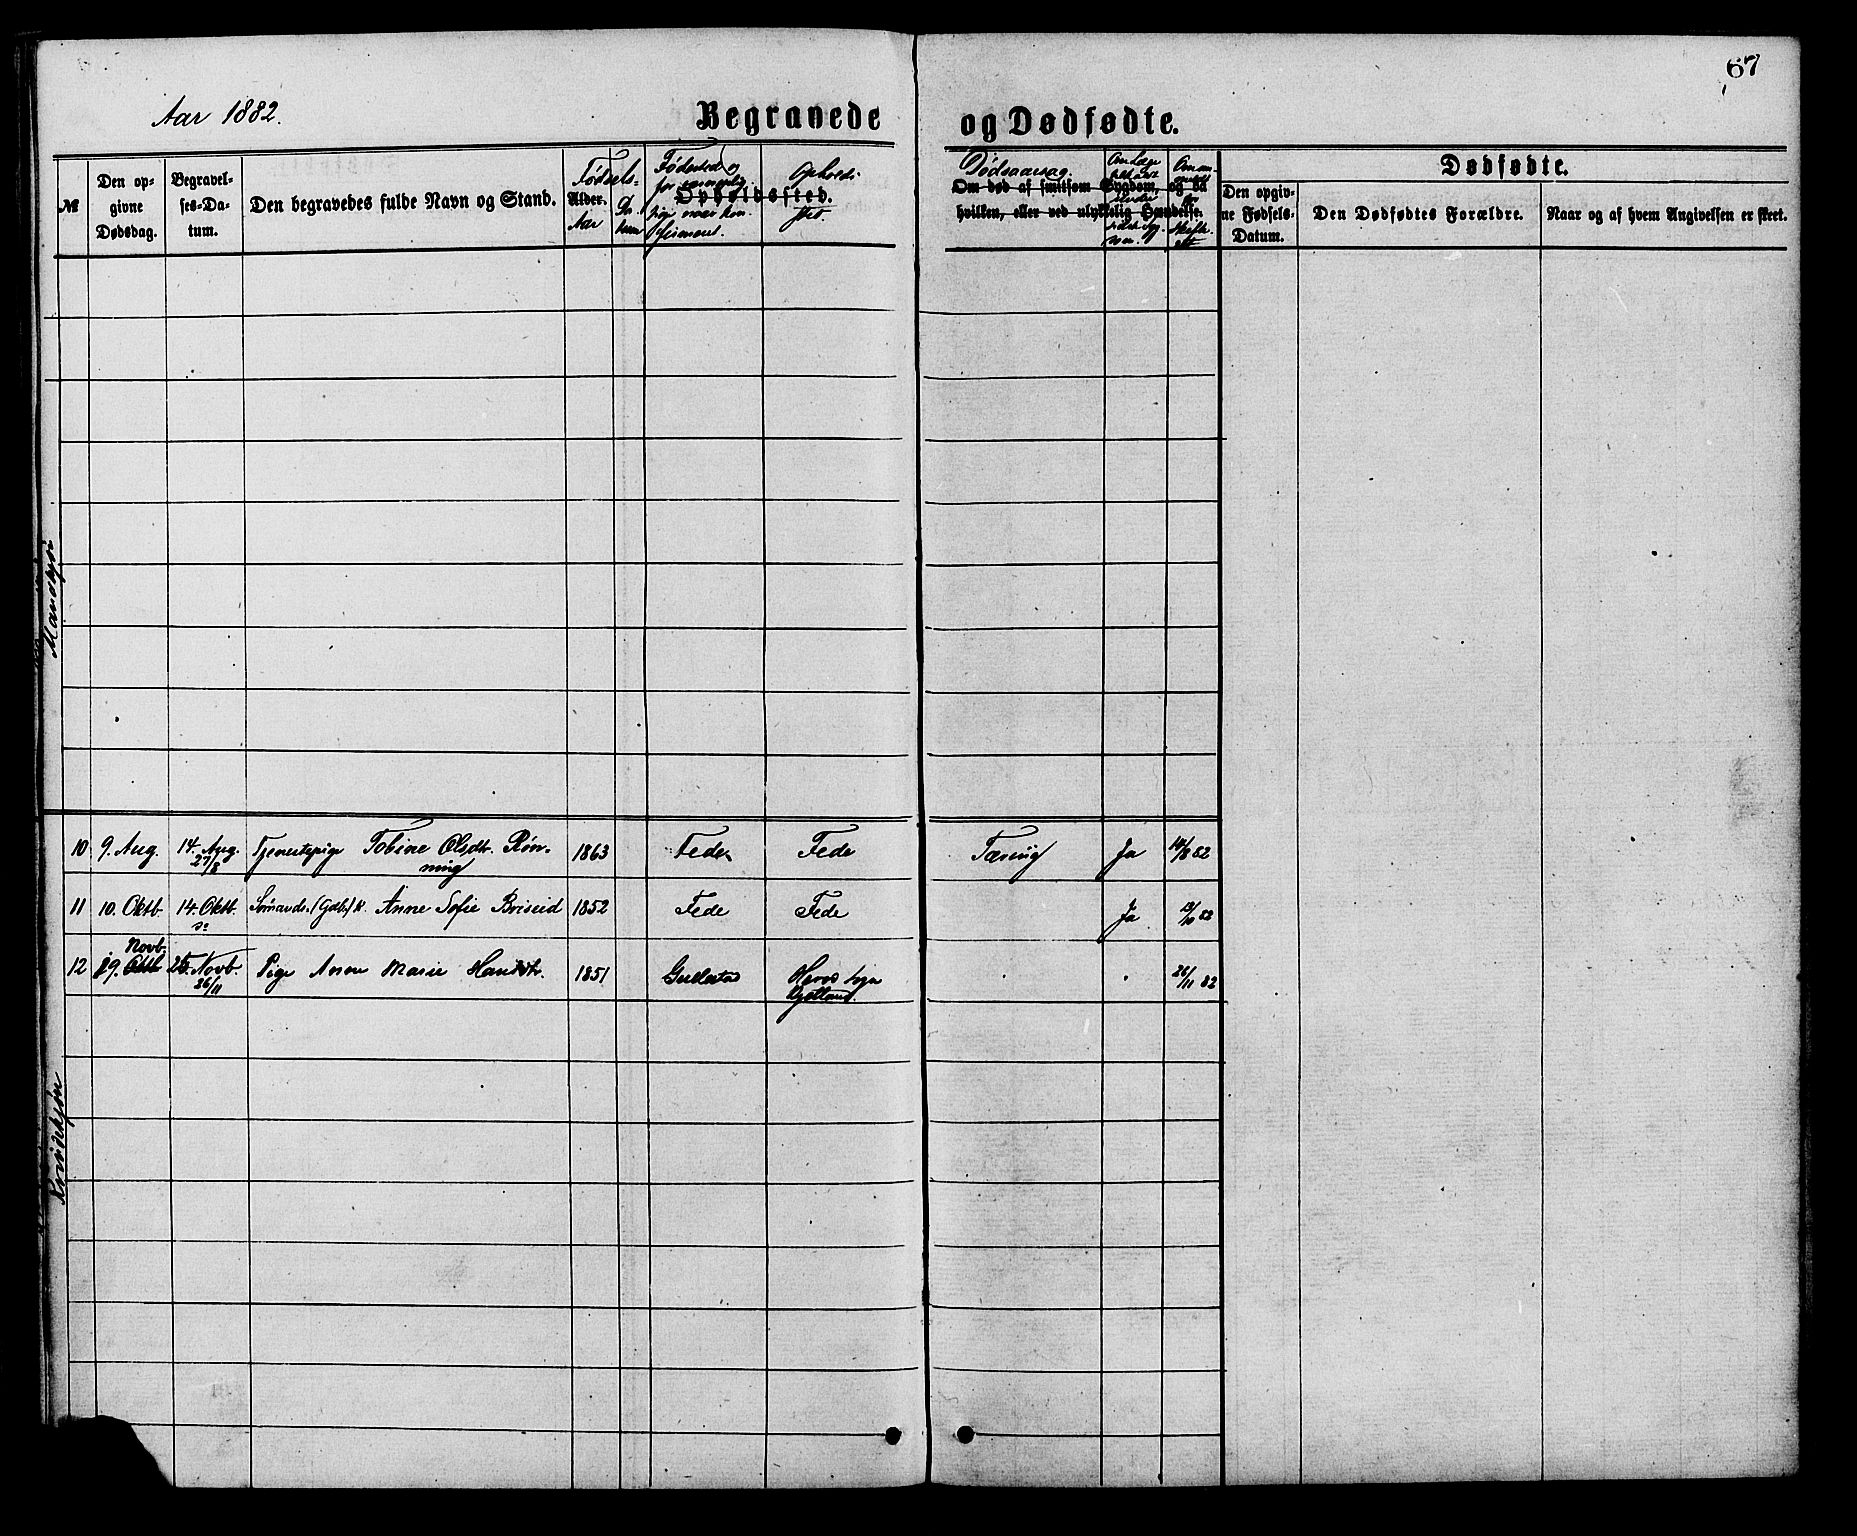 67
Aar 1882.
Begravede og Dødfødte.
№
Den opgivne Dødsdag.
Begravelses-Datum.
Den begravedes fulde Navn og Stand.
Fødsels-
Alder.
Aar
Datum
Fødested
Opholdssted.
Opholdssted.
Dødsaarsag.
Om død af smitsom Sygdom, og da
hvilken, eller ved ulykkelig Hændelse.
Dødfødte.
Den opgivne Fødsels-Datum.
Den Dødfødtes Forældre.
Naar og af hvem Angivelsen er skeet.
Mandkjøn
10 9. Aug. 14. Aug. 27/8 Tjenestepige Tobine Olsdtr. Rønning 1863 Fede Fede Tæring Ja 14/8 82
11 10. Oktb. 14. Oktb. Sømands. (Gdb.) k. Anne Sofie Briseid 1852 Fede Fede Ja 82
12 19. Oktb. Novb. 25. Novb. 26/11 Pige Anne Marie Hansdtr. 1851 26/11 82
Kvindekjøn